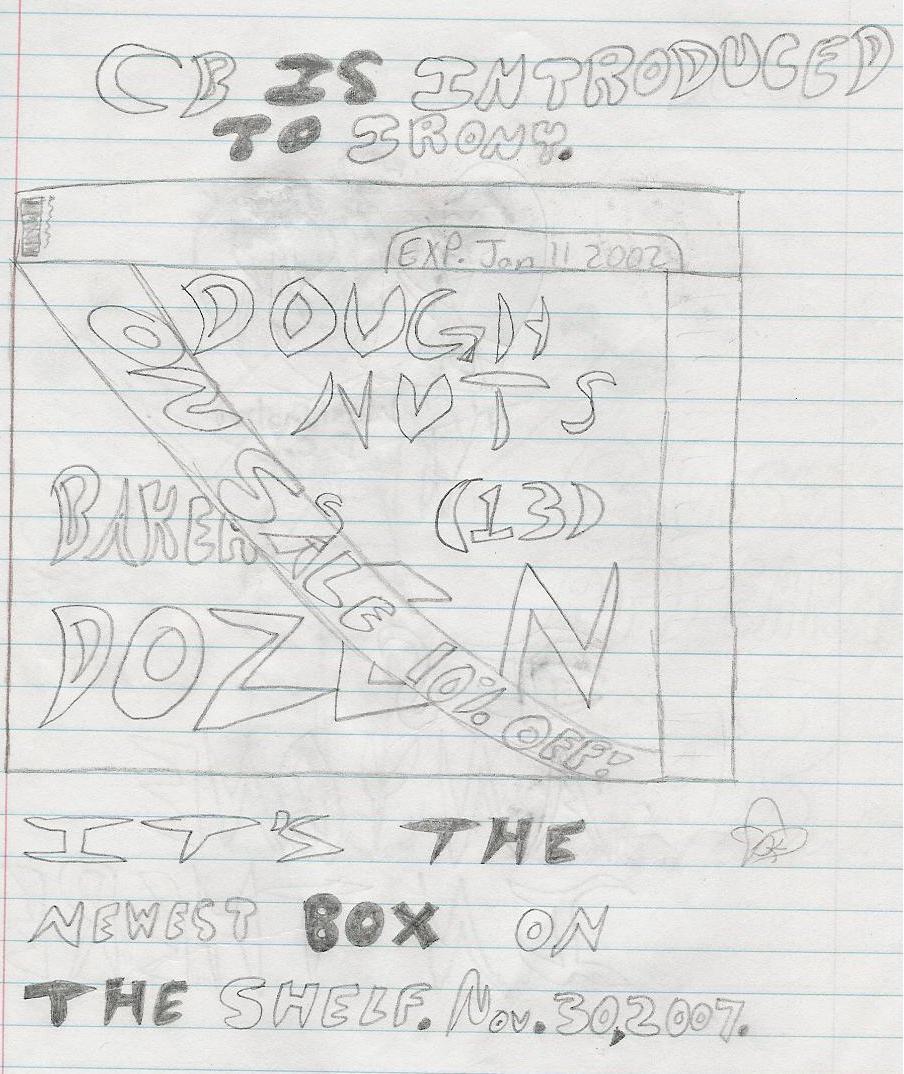 CB IS INTRODUCED
TO IRONY.
EXP. Jan 11 2002
DOUGH
NUTS
ON SALE 10% OFF!
BAKER'S (13)
DOZEN
IT'S THE
NEWEST BOX ON
THE SHELF. Nov. 30, 2007.